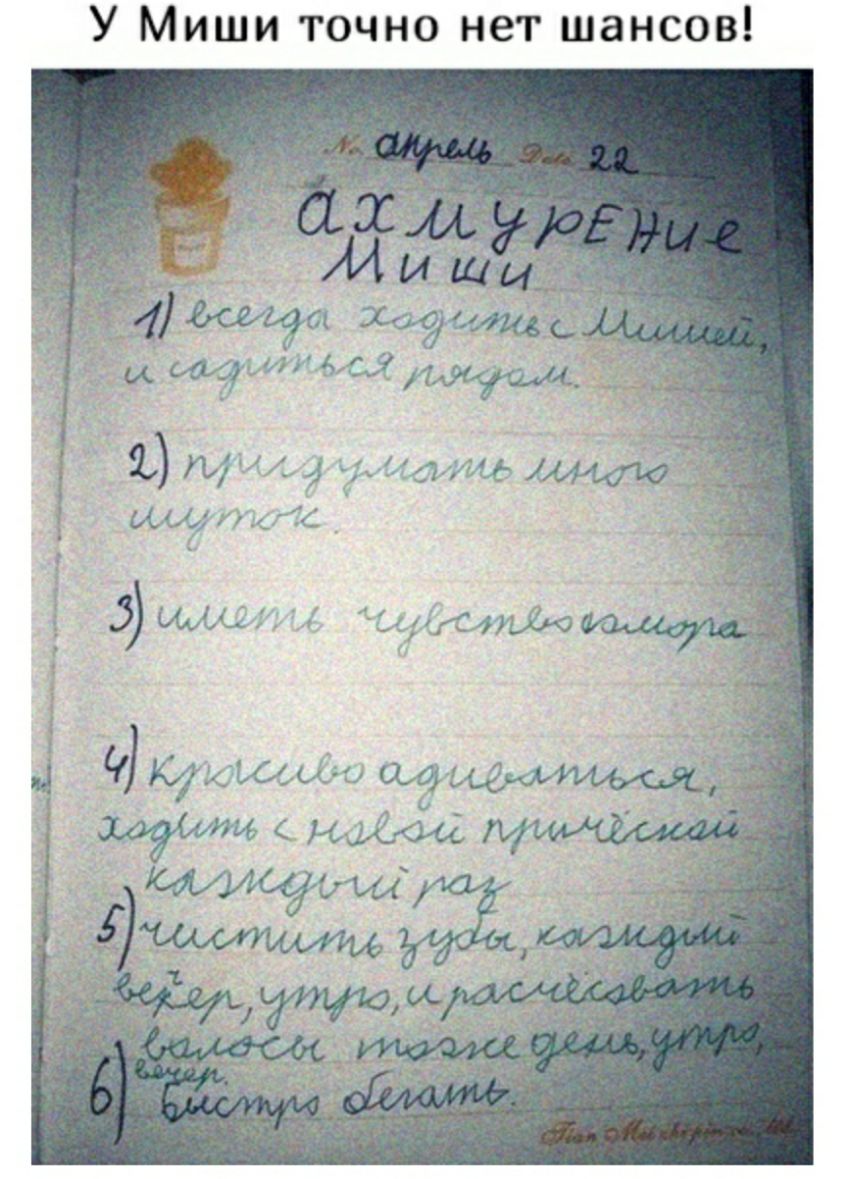 У Миши точно нет шансов!
No. апрель Date 22
ахмурение
Миши
1) всегда ходить с Мишей,
и садиться рядом.
2) придумать много
шуток.
3) иметь чувство юмора
4) красиво адиваться,
ходить с новой причёской
каждый раз
5) чистить зубы, каждый
вечер, утро, и расчёсовать
волосы тоже день, утро,
вечер.
6) Быстро бегать.